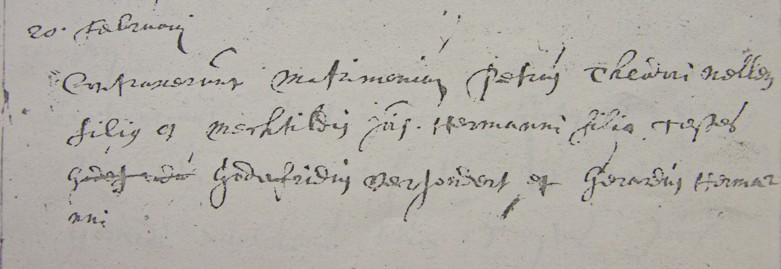 20. Februarij
Contraxerunt Matrimonium Petrus Theodori Nellen
filius et Mechtildis Jãs. Hermanni filia testes
Godefridus Godefridus Versondert et Gerardus Herma
nni